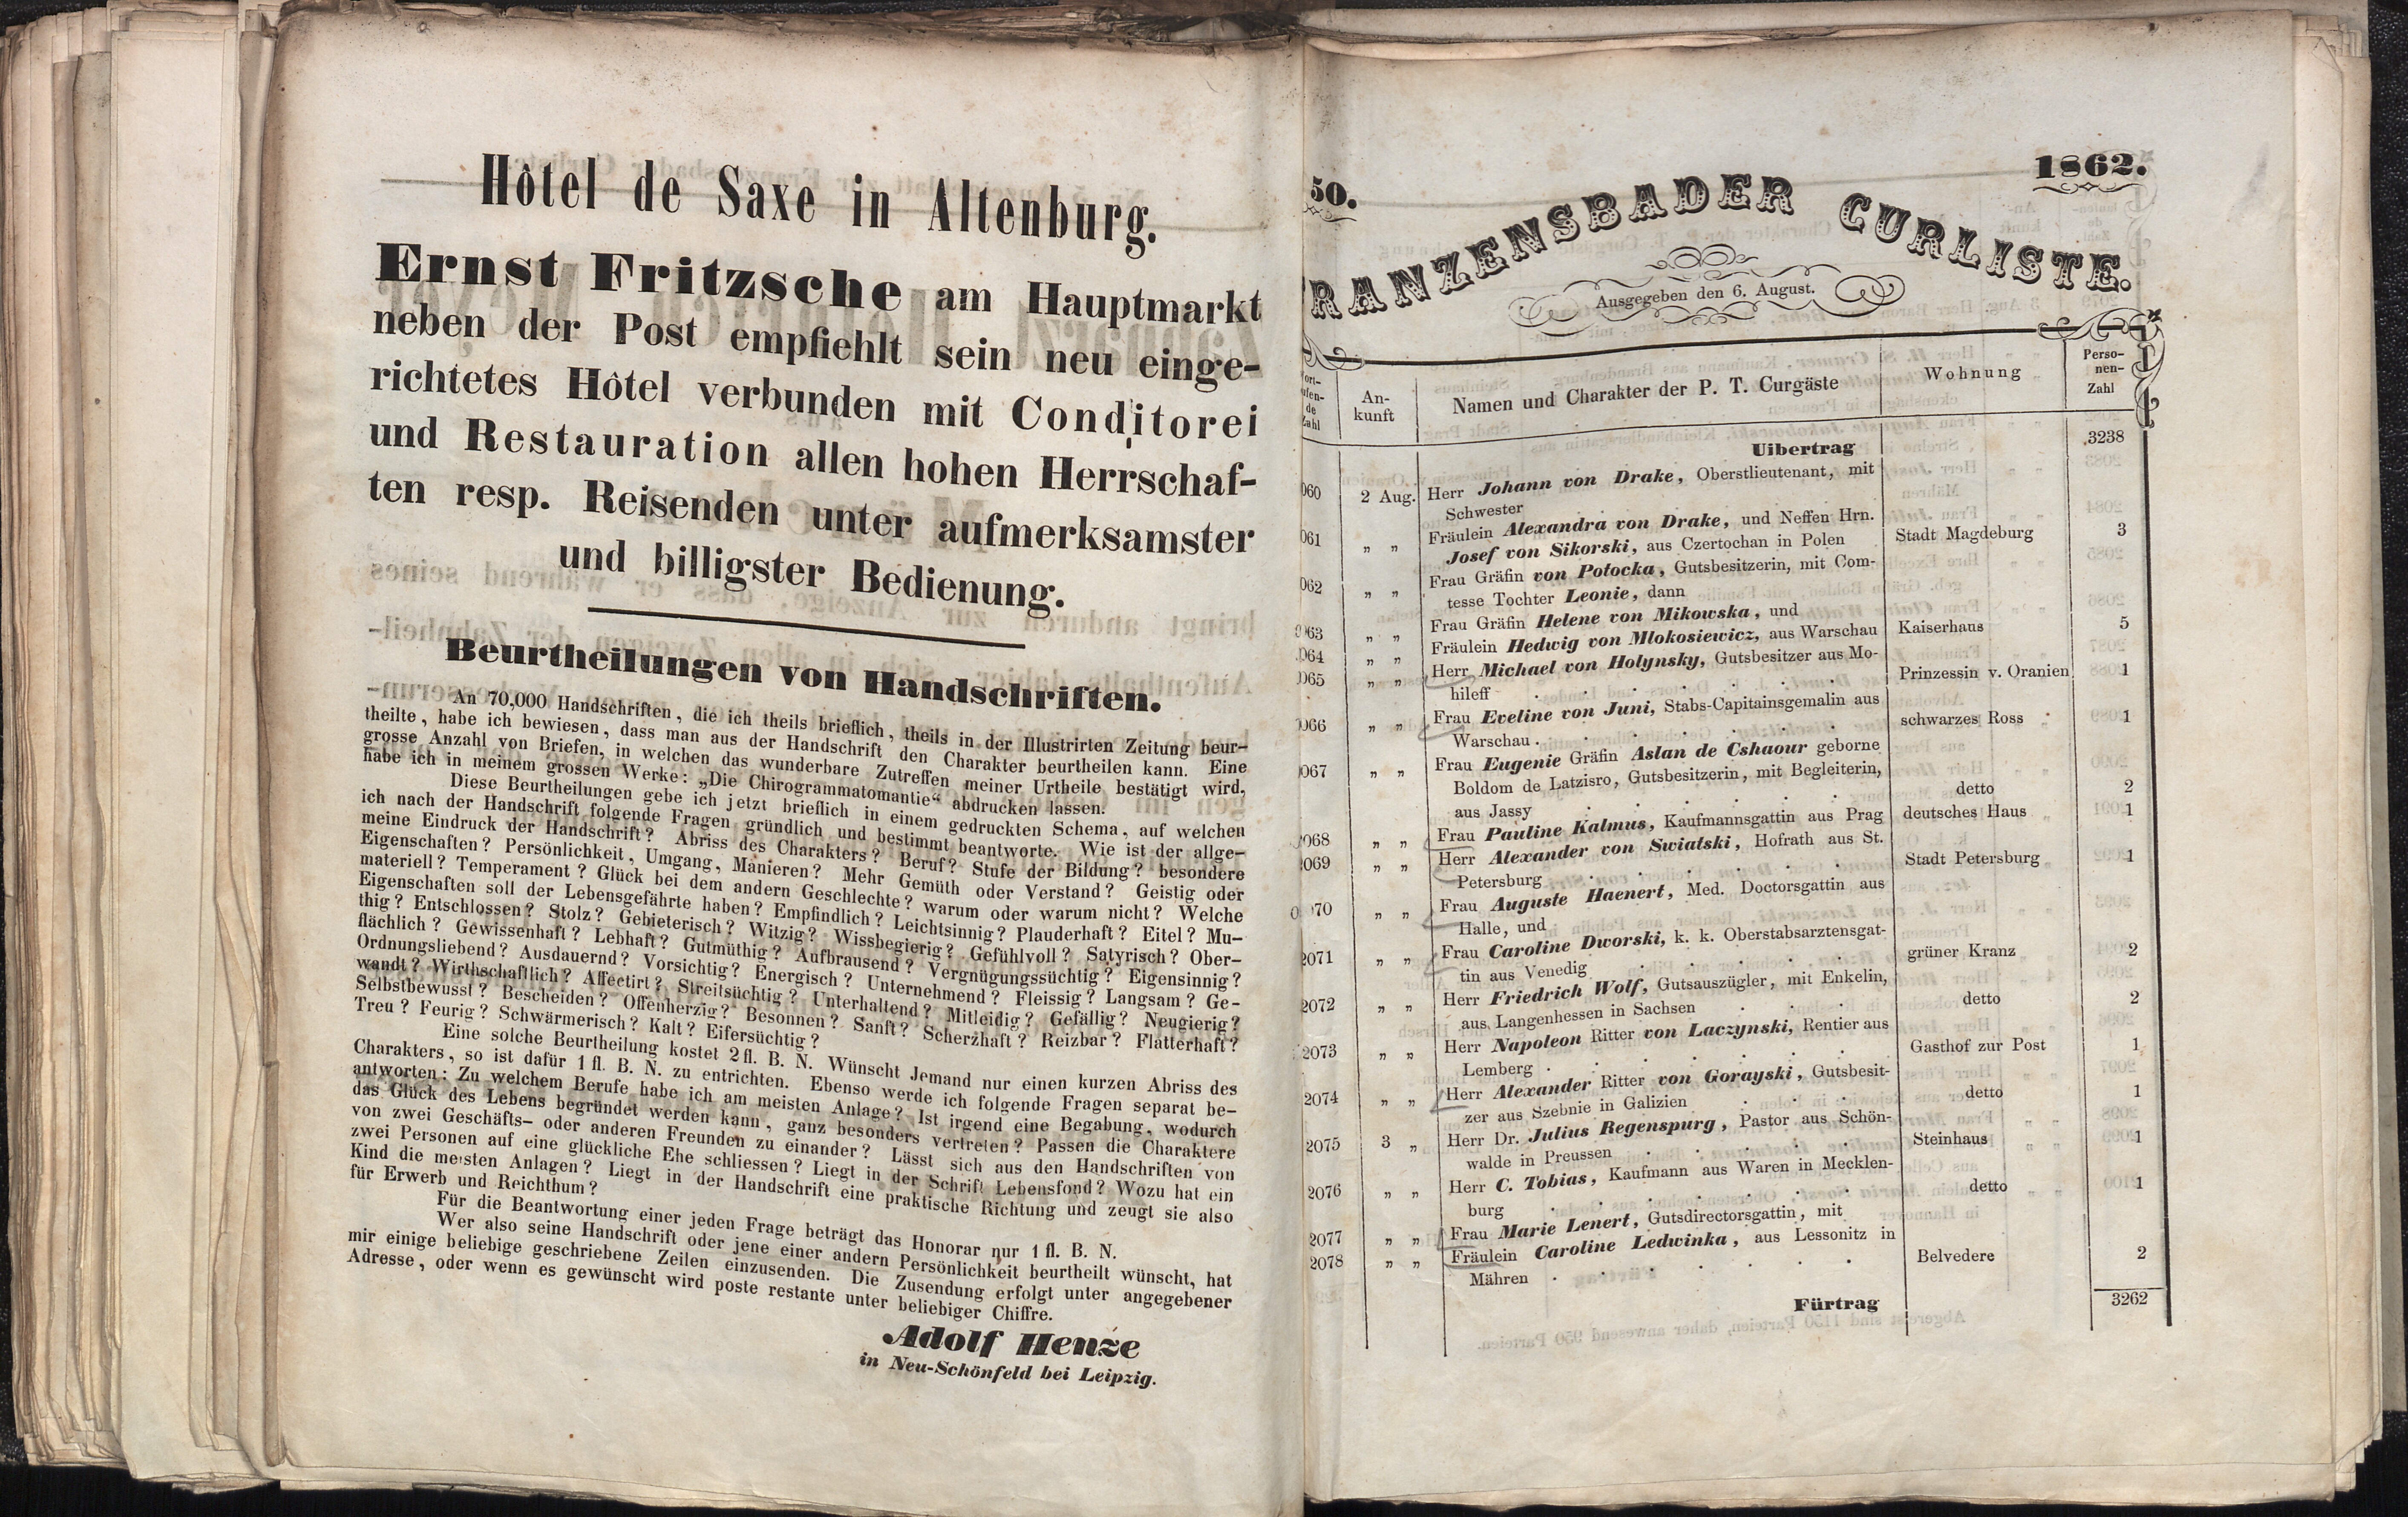 Hôtel de Saxe in Altenburg.
Ernst Fritzsche am Hauptmarkt
neben der Post empfiehlt sein neu einge-
richtetes Hôtel verbunden mit Conditorei
und Restauration allen hohen Herrschaf-
ten resp. Reisenden unter aufmerksamster
und billigster Bedienung.
Beurtheilungen von Handschriften.
An 70,000 Handschriften, die ich theils brieflich, theils in der Illustrirten Zeitung beur-
theilte, habe ich bewiesen, dass man aus der Handschrift den Charakter beurtheilen kann. Eine
grosse Anzahl von Briefen, in welchen das wunderbare Zutreffen meiner Urtheile bestätigt wird,
habe ich in meinem grossen Werke: „Die Chirogrammatomantie“ abdrucken lassen.
Diese Beurtheilungen gebe ich jetzt brieflich in einem gedruckten Schema, auf welchen
ich nach der Handschrift folgende Fragen gründlich und bestimmt beantworte. Wie ist der allge-
meine Eindruck der Handschrift? Abriss des Charakters? Beruf? Stufe der Bildung? besondere
Eigenschaften? Persönlichkeit, Umgang, Manieren? Mehr Gemüth oder Verstand? Geistig oder
materiell? Temperament? Glück bei dem andern Geschlechte? warum oder warum nicht? Welche
Eigenschaften soll der Lebensgefährte haben? Empfindlich? Leichtsinnig? Plauderhaft? Eitel? Mu-
thig? Entschlossen? Stolz? Gebieterisch? Witzig? Wissbegierig? Gefühlvoll? Satyrisch? Ober-
flächlich? Gewissenhaft? Lebhaft? Gutmüthig? Aufbrausend? Vergnügungssüchtig? Eigensinnig?
Ordnungsliebend? Ausdauernd? Vorsichtig? Energisch? Unternehmend? Fleissig? Langsam? Ge-
wandt? Wirthschaftlich? Affectirt? Streitsüchtig? Unterhaltend? Mitleidig? Gefällig? Neugierig?
Selbstbewusst? Bescheiden? Offenherzig? Besonnen? Sanft? Scherzhaft? Reizbar? Flatterhaft?
Treu? Feurig? Schwärmerisch? Kalt? Eifersüchtig?
Eine solche Beurtheilung kostet 2 fl. B. N. Wünscht Jemand nur einen kurzen Abriss des
Charakters, so ist dafür 1 fl. B. N. zu entrichten. Ebenso werde ich folgende Fragen separat be-
antworten: Zu welchem Berufe habe ich am meisten Anlage? Ist irgend eine Begabung, wodurch
das Glück des Lebens begründet werden kann, ganz besonders vertreten? Passen die Charaktere
von zwei Geschäfts- oder anderen Freunden zu einander? Lässt sich aus den Handschriften von
zwei Personen auf eine glückliche Ehe schliessen? Liegt in der Schrift Lebensfond? Wozu hat ein
Kind die meisten Anlagen? Liegt in der Handschrift eine praktische Richtung und zeugt sie also
für Erwerb und Reichthum?
Für die Beantwortung einer jeden Frage beträgt das Honorar nur 1 fl. B. N.
Wer also seine Handschrift oder jene einer andern Persönlichkeit beurtheilt wünscht, hat
mir einige beliebige geschriebene Zeilen einzusenden. Die Zusendung erfolgt unter angegebener
Adresse, oder wenn es gewünscht wird poste restante unter beliebiger Chiffre.
Adolf Henze
in Neu-Schönfeld bei Leipzig.
50. 1862.
RANZENSBADER CURLISTE.
Ausgegeben den 6. August.
ort-
ufen-
de
Zahl
An-
kunft
Namen und Charakter der P. T. Curgäste
Wohnung
Perso-
nen-
Zahl
Uibertrag 3238
060 2 Aug. Herr Johann von Drake, Oberstlieutenant, mit
Schwester
061 „ „ Fräulein Alexandra von Drake, und Neffen Hrn.
Josef von Sikorski, aus Czertochan in Polen Stadt Magdeburg 3
062 „ „ Frau Gräfin von Potocka, Gutsbesitzerin, mit Com-
tesse Tochter Leonie, dann
063 „ „ Frau Gräfin Helene von Mikowska, und
064 „ „ Fräulein Hedwig von Mlokosiewicz, aus Warschau Kaiserhaus 5
065 „ „ Herr Michael von Holynsky, Gutsbesitzer aus Mo-
hileff . . . . . . Prinzessin v. Oranien 1
066 „ „ Frau Eveline von Juni, Stabs-Capitainsgemalin aus
Warschau . . . . . . schwarzes Ross 1
067 „ „ Frau Eugenie Gräfin Aslan de Cshaour geborne
Boldom de Latzisro, Gutsbesitzerin, mit Begleiterin,
aus Jassy . . . . . . detto 2
068 „ „ Frau Pauline Kalmus, Kaufmannsgattin aus Prag deutsches Haus 1
2069 „ „ Herr Alexander von Swiatski, Hofrath aus St.
Petersburg . . . . . . Stadt Petersburg 1
070 „ „ Frau Auguste Haenert, Med. Doctorsgattin aus
Halle, und
2071 „ „ Frau Caroline Dworski, k. k. Oberstabsarztensgat-
tin aus Venedig . . . . . grüner Kranz 2
2072 „ „ Herr Friedrich Wolf, Gutsauszügler, mit Enkelin,
aus Langenhessen in Sachsen . . . detto 2
2073 „ „ Herr Napoleon Ritter von Laczynski, Rentier aus
Lemberg . . . . . . Gasthof zur Post 1
2074 „ „ Herr Alexander Ritter von Gorayski, Gutsbesit-
zer aus Szebnie in Galizien . . . detto 1
2075 3 „ Herr Dr. Julius Regenspurg, Pastor aus Schön-
walde in Preussen . . . . Steinhaus 1
2076 „ „ Herr C. Tobias, Kaufmann aus Waren in Mecklen-
burg . . . . . . detto 1
2077 „ „ Frau Marie Lenert, Gutsdirectorsgattin, mit
2078 „ „ Fräulein Caroline Ledwinka, aus Lessonitz in
Mähren . . . . . . . Belvedere 2
Fürtrag 3262